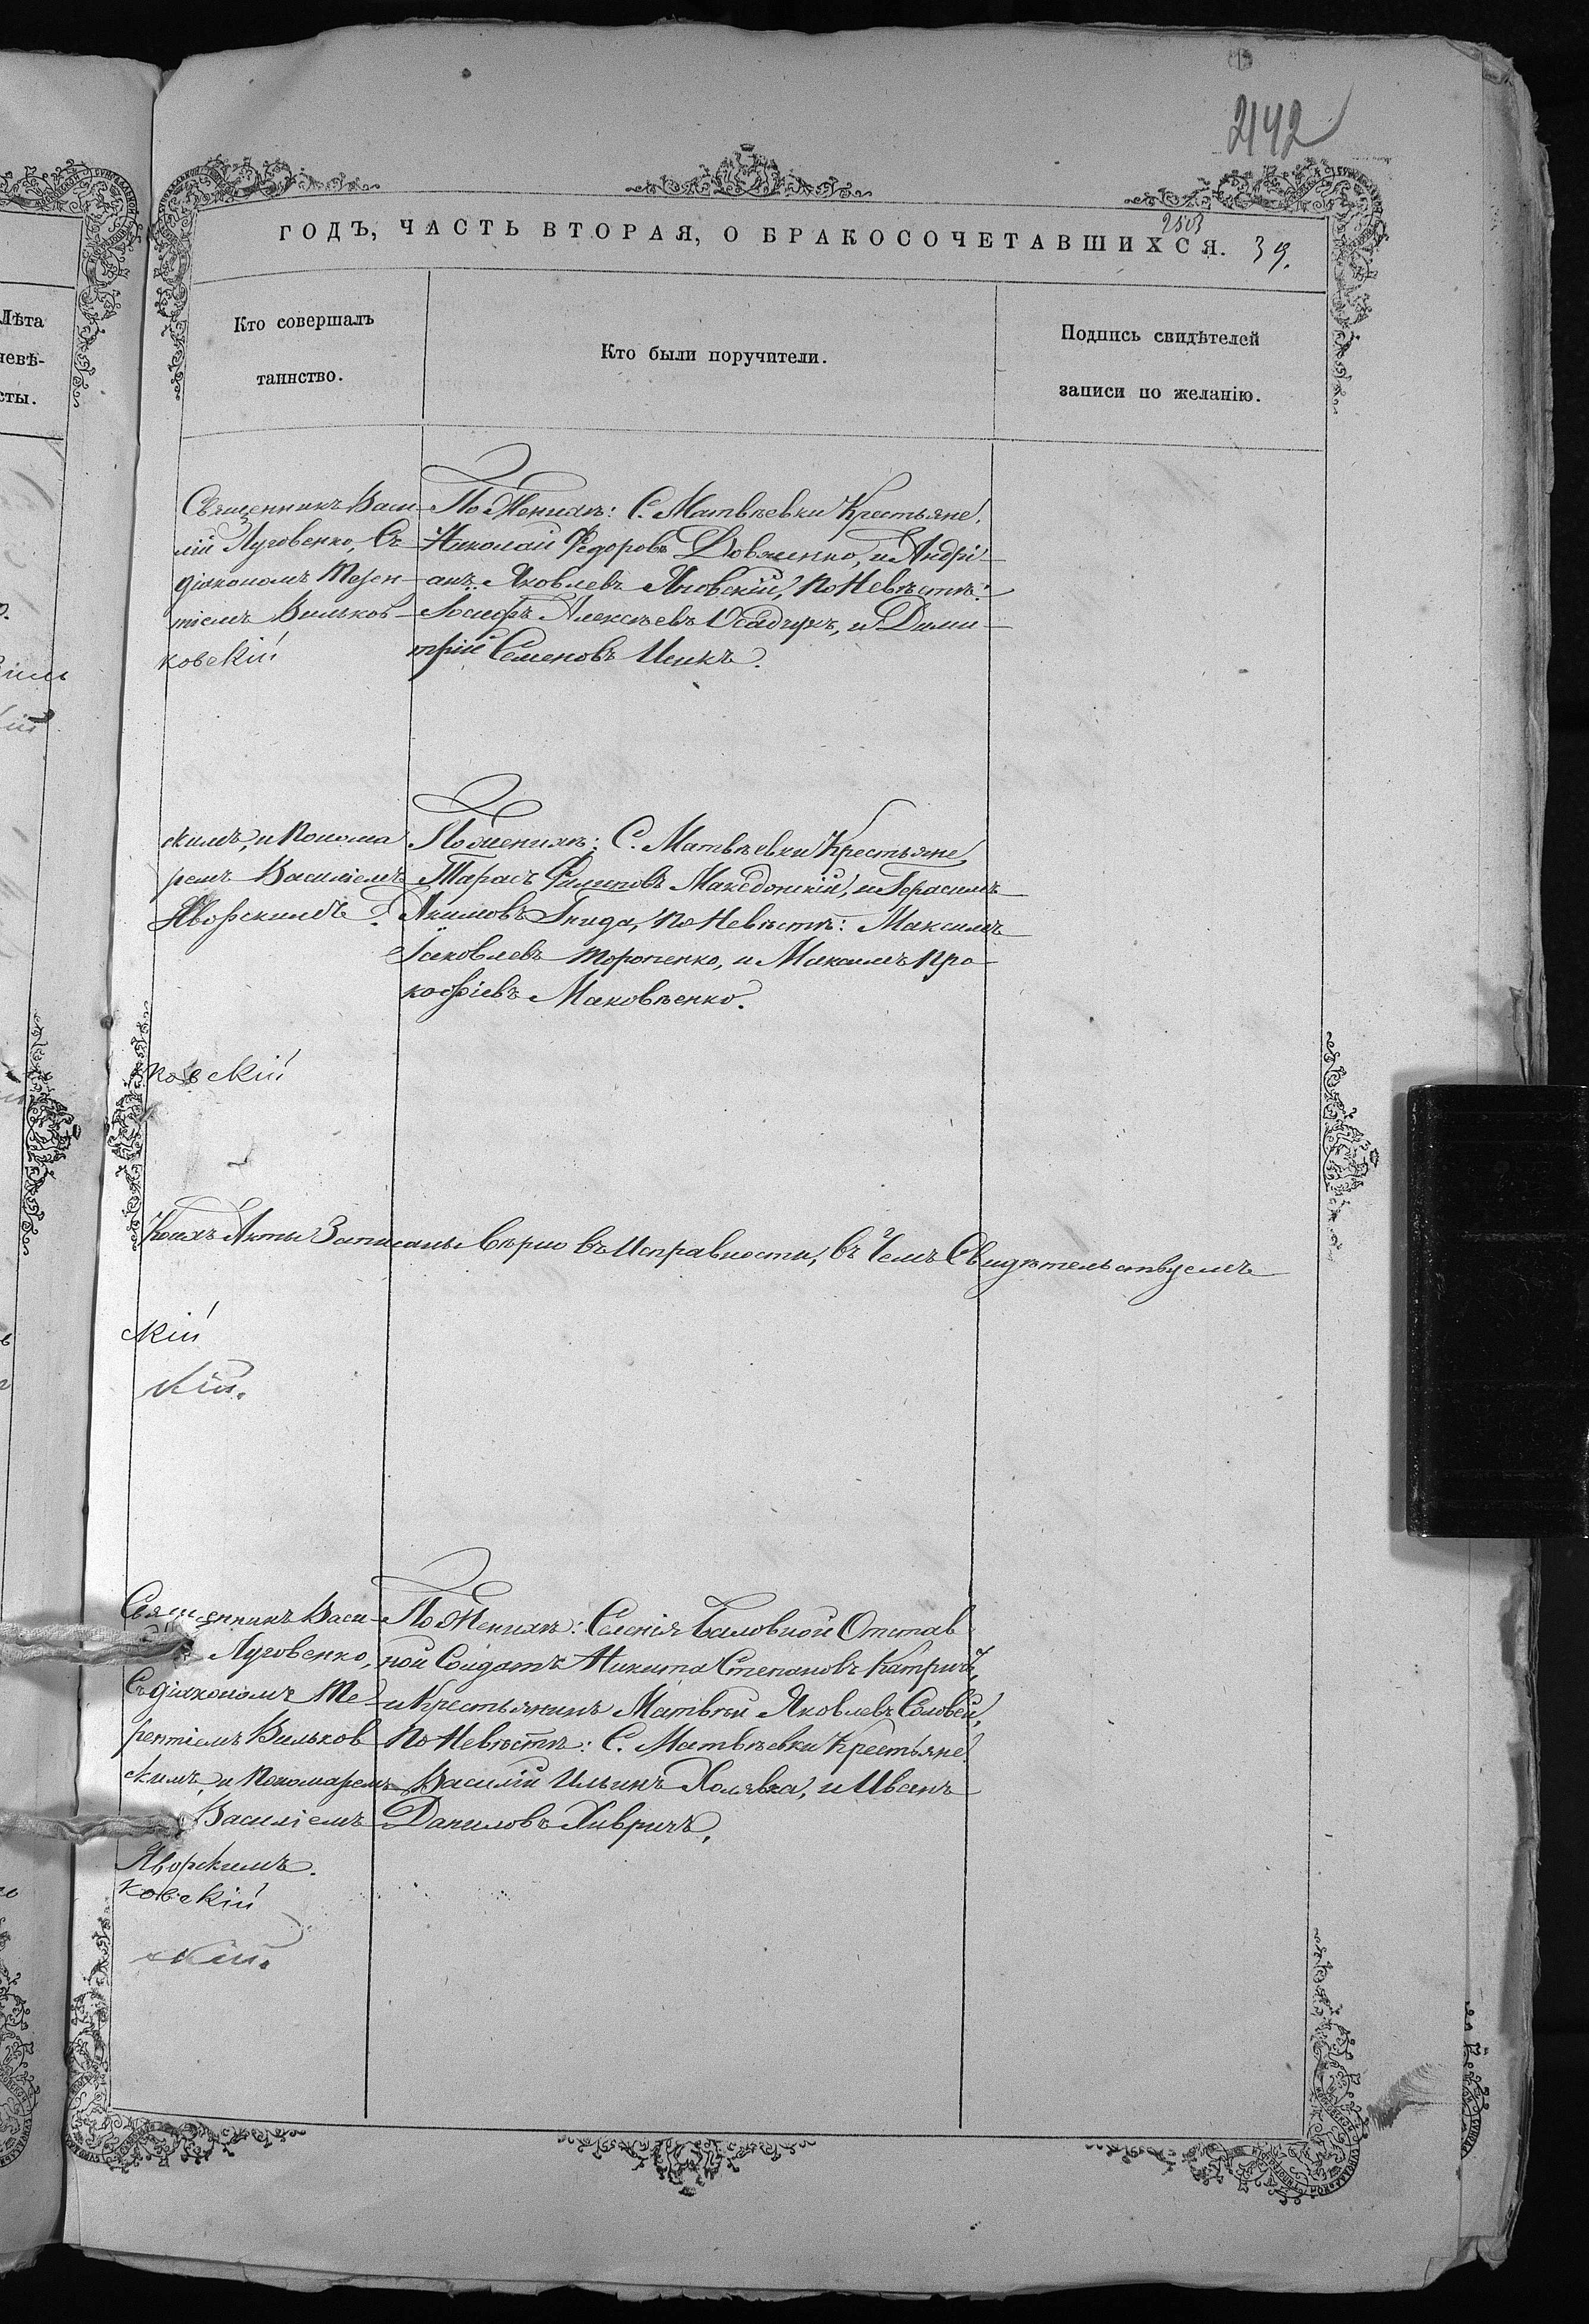 2142
2503
ГОДЪ, ЧАСТЬ ВТОРАЯ, О БРАКОСОЧЕТАВШИХСЯ. 39.
Лѣта
невѣ-
сты.
Кто совершалъ
таинство.
Кто были поручители.
Подпись свидѣтелей
записи по желанію.
Священникъ Васи
лій Луговенко, Съ
діакономъ
тіемъ Вильков
ковскій
По Женихѣ: С. Матвѣевки Крестьяне,
Николай Федоровъ Довженко, и Андрі
анъ Яковлевъ Яновскій, По Невѣстѣ:
Іосифъ Алексѣевъ Осадчукъ, и Дими
трій Семеновъ
скимъ, и Понома
ремъ Василіемъ
Яворскимъ.
По женихѣ: С. Матвѣевки Крестьяне
Тарасъ Филиповъ Македонскій, и Герасимъ
Якимовъ Гнида, По Невѣстѣ: Максимъ
Іаковлевъ Торопенко, и Максимъ Про
кофіевъ Маковѣенко.
ковскій
Коихъ Акты Записаны вѣрно въ Исправности, въ Чемъ Свидѣтельствуемъ
скій
скій.
Священникъ Васи
Луговенко,
Съ діакономъ Те
рентіемъ Вильков
скимъ, и Пономаремъ
Василіемъ
Яворскимъ.
ковскій
скій.
По Женихѣ: Селенія Баловной Отстав
ной Солдатъ Никита Степановъ Катричъ,
и Крестьянинъ Матвѣй Яковлевъ Соловей,
По Невѣстѣ: С. Матвѣевки Крестьяне
Василій Ильинъ Холявка, и Иванъ
Даниловъ Хивричъ.